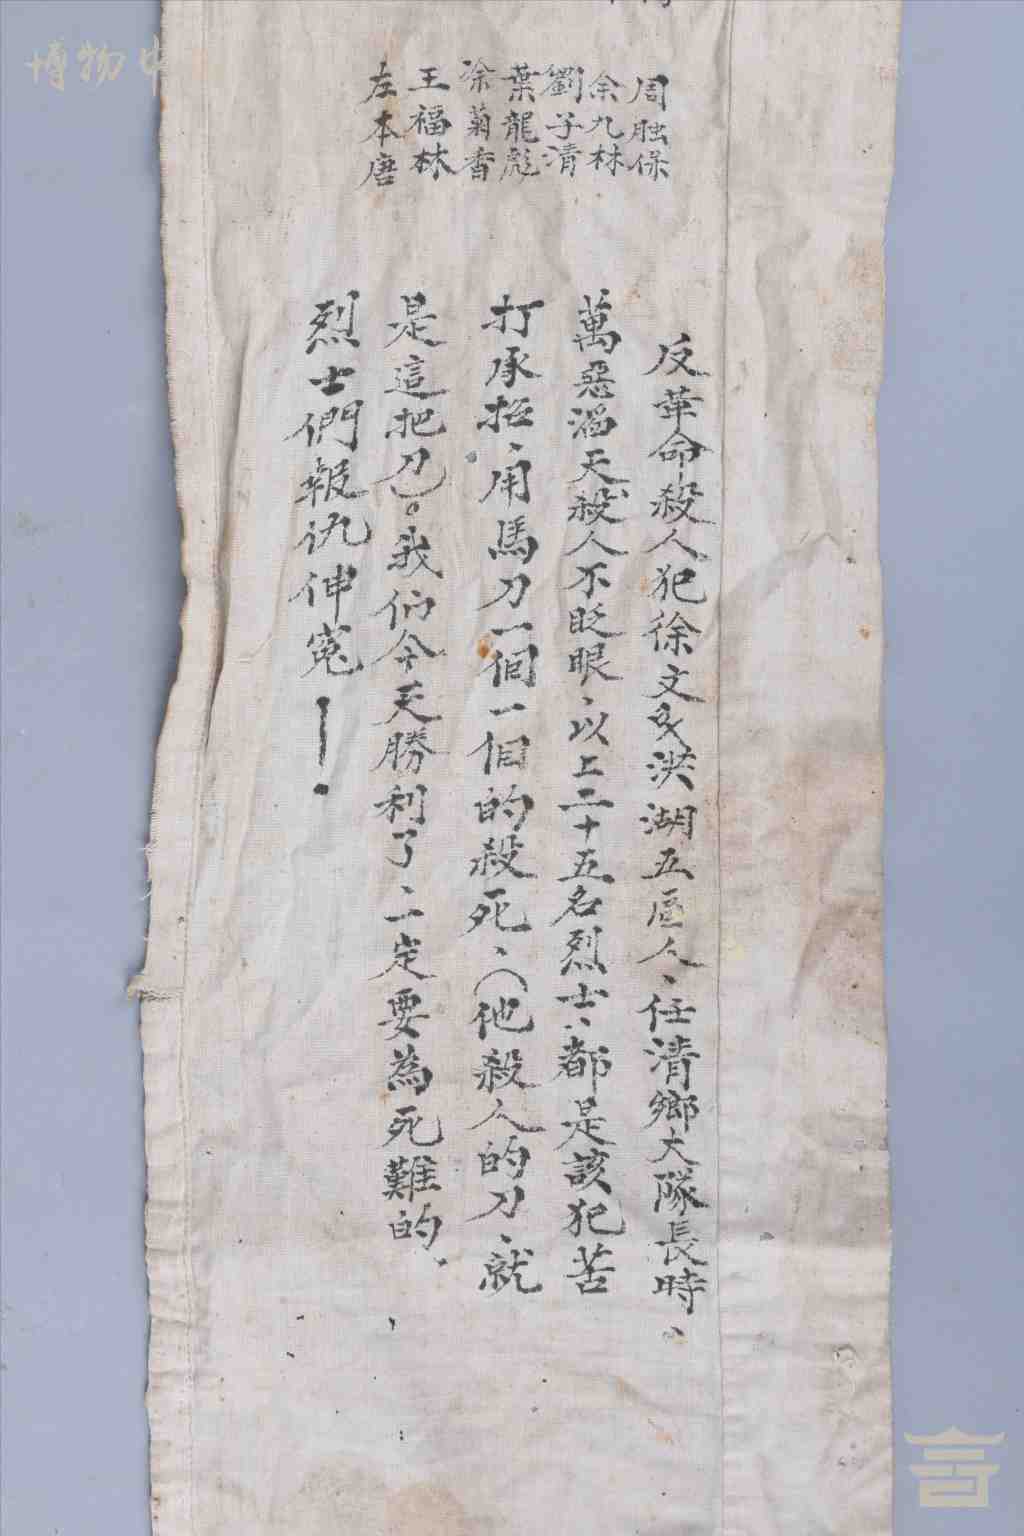 博物
周胐保
余九林
劉子清
葉龍彪
涂菊香
王福林
左本唐
反革命殺人犯徐文洪湖五區人、任清鄉大隊長時、
萬惡滔天殺人不眨眼、以上二十五名烈士、都是該犯苦
打承招、用馬刀一個一個的殺死、（他殺人的刀、就
是這把刀）。我们今天勝利了、一定要為死難的
烈士們報仇伸冤！